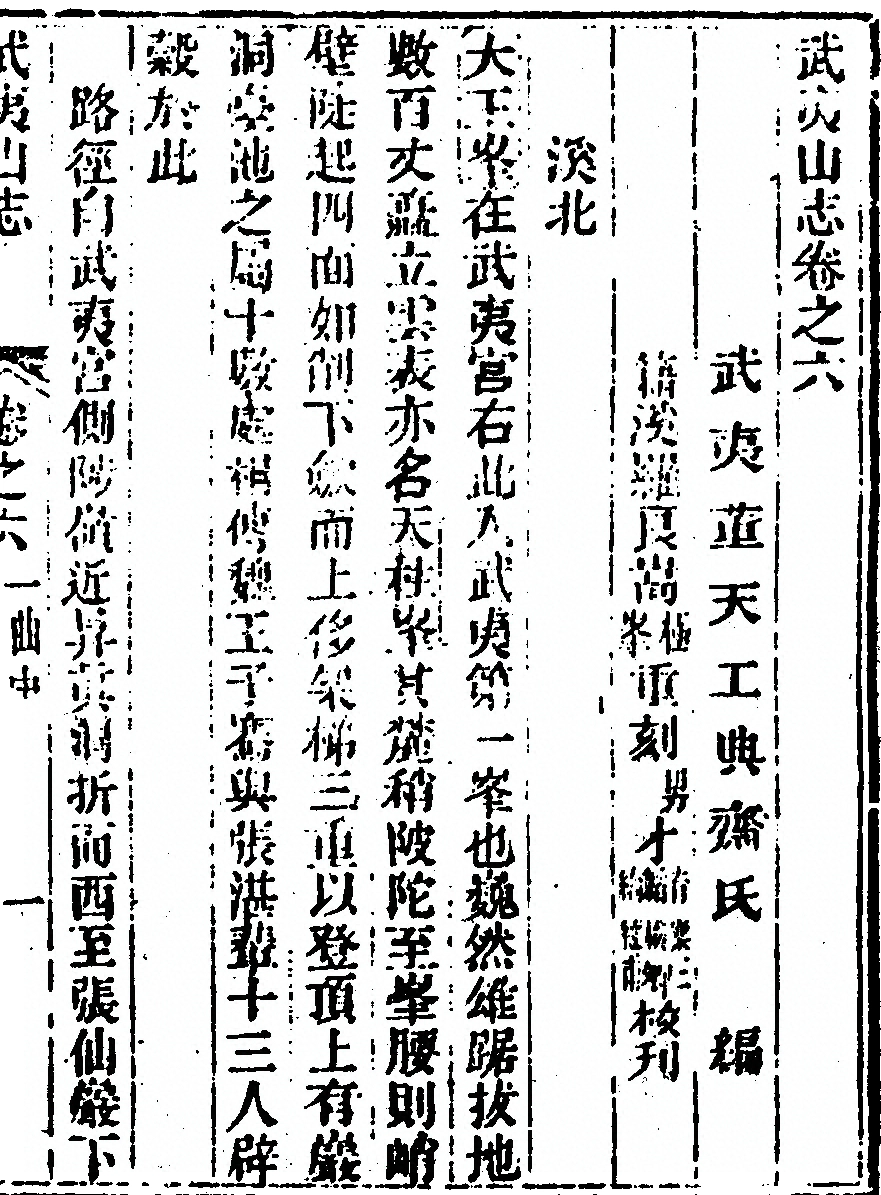 武夷山志卷之六
武夷董天工典齋氏編
籍溪羅良嵩極峯重刻男才校刊
溪北
大王峯在武夷宮右此入武夷第一峯也巍然雄踞拔地
數百丈矗立雲表亦名天柱峯其麓稍陂陀至峯腰則峭
壁陡起四面如削下斂而上侈架梯三重以登頂上有巖
洞臺池之屬十數處相傳魏王子騫與張湛輩十三人辟
穀於此
路徑自武夷宮側陟嶺近昇真洞折而西至張仙巖下
武夷山志
卷之六
一曲中
一